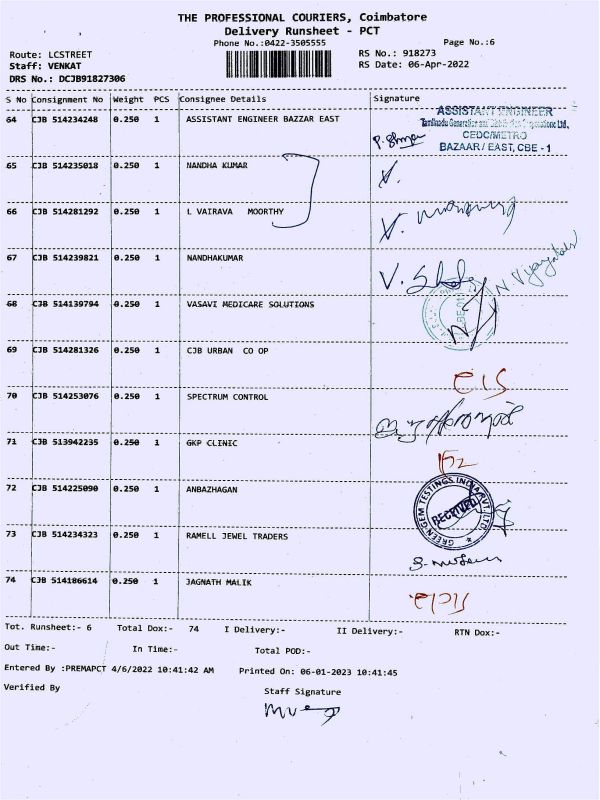 THE PROFESSIONAL COURIERS, Coimbatore
Delivery Runsheet - PCT
Phone No.:0422-3505555
Page No.:6
Route: LCSTREET
RS No.: 918273
Staff: VENKAT
RS Date: 06-Apr-2022
DRS No.: DCJB91827306
S No Consignment No Weight PCS Consignee Details Signature
64 CJB 514234248 0.250 1 ASSISTANT ENGINEER BAZZAR EAST
ASSISTANT ENGINEER
CEDC/METRO
BAZAAR / EAST, CBE - 1
65 CJB 514235018 0.250 1 NANDHA KUMAR
66 CJB 514281292 0.250 1 L VAIRAVA MOORTHY
67 CJB 514239821 0.250 1 NANDHAKUMAR
68 CJB 514139794 0.250 1 VASAVI MEDICARE SOLUTIONS
69 CJB 514281326 0.250 1 CJB URBAN CO OP
70 CJB 514253076 0.250 1 SPECTRUM CONTROL
71 CJB 513942235 0.250 1 GKP CLINIC
72 CJB 514225090 0.250 1 ANBAZHAGAN
GREEN GEM TESTINGS INDIA PVT. LTD.
RECEIVED
73 CJB 514234323 0.250 1 RAMELL JEWEL TRADERS
74 CJB 514186614 0.250 1 JAGNATH MALIK
Tot. Runsheet:- 6 Total Dox:- 74 I Delivery:- II Delivery:- RTN Dox:-
Out Time:- In Time:- Total POD:-
Entered By :PREMAPCT 4/6/2022 10:41:42 AM Printed On: 06-01-2023 10:41:45
Verified By
Staff Signature